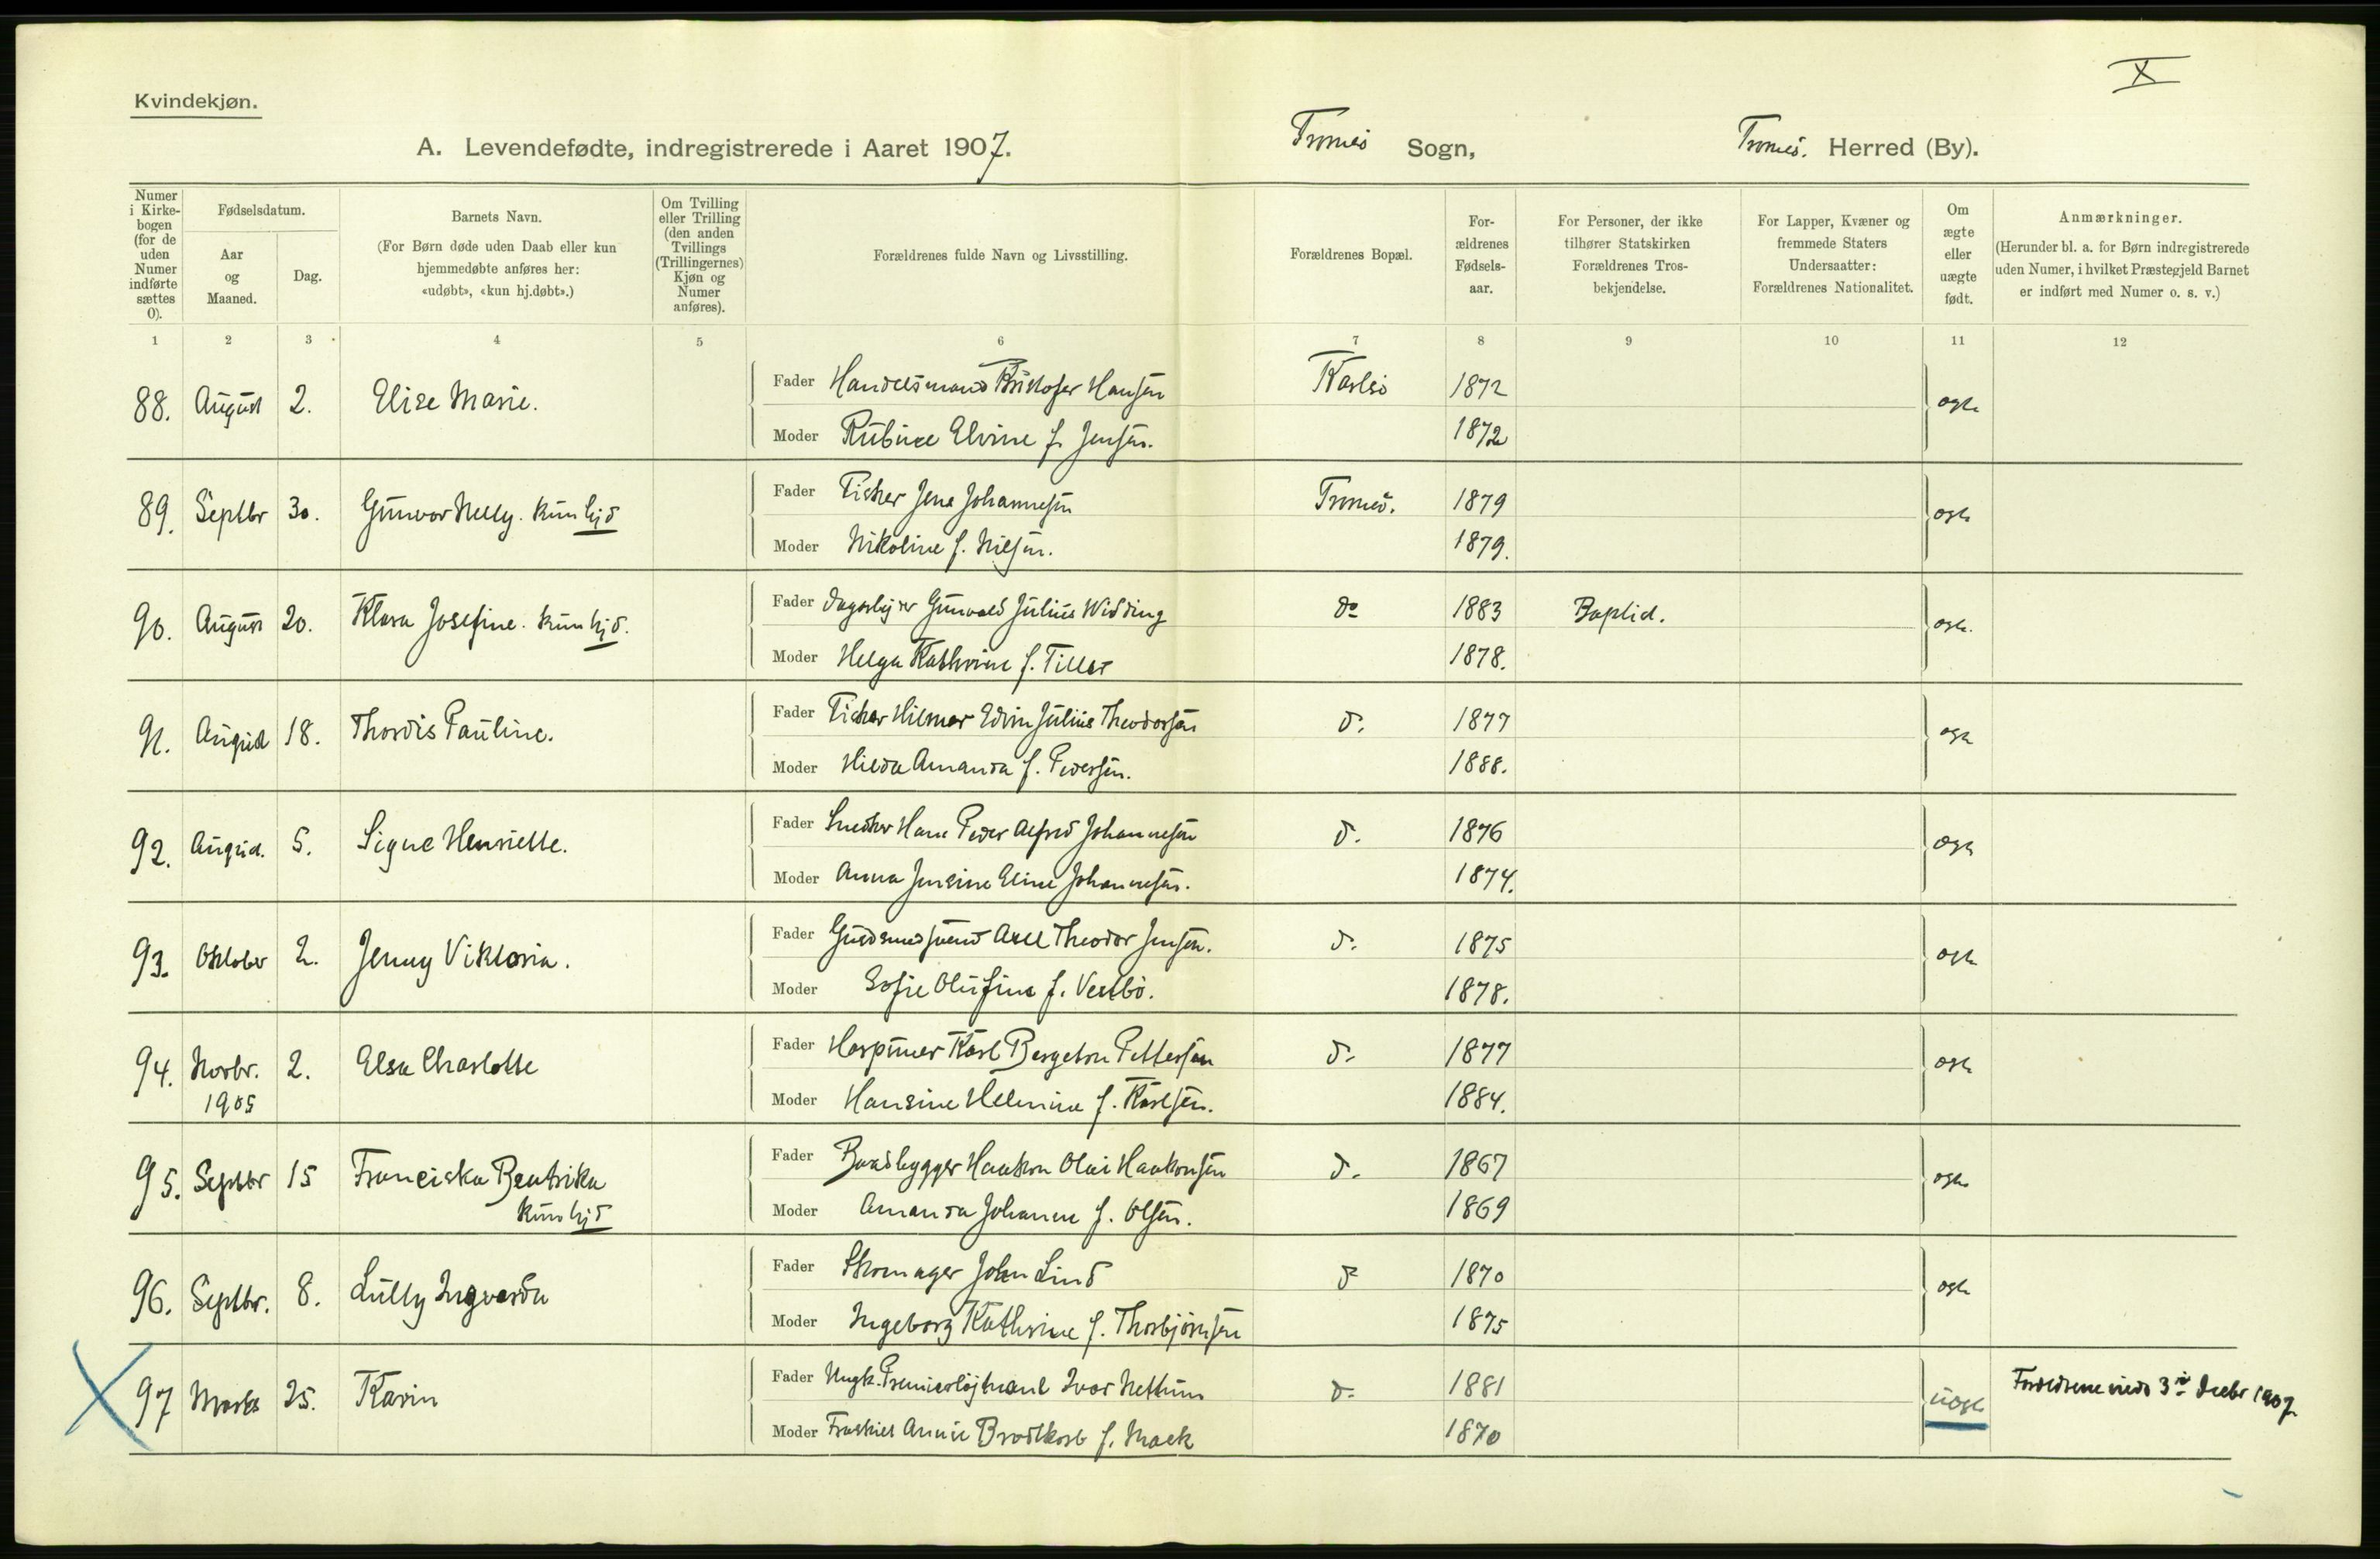 X
Kvindekjøn.
A. Levendefødte, indregistrerede i Aaret 1907. Tromsö Sogn, Tromsö. Herred (By).
Numer i Kirke-bogen (for de uden Numer indførte sættes 0).
Fødselsdatum.
Aar og Maaned.
Dag.
Barnets Navn.
(For Børn døde uden Daab eller kun hjemmedøbte anføres her: «udøbt», «kun hj.døbt».)
Om Tvilling eller Trilling (den anden Tvillings (Trillingernes) Kjøn og Numer anføres).
Forældrenes fulde Navn og Livsstilling.
Forældrenes Bopæl.
For-ældrenes Fødsels-aar.
For Personer, der ikke tilhører Statskirken Forældrenes Tros-bekjendelse.
For Lapper, Kvæner og fremmede Staters Undersaatter: Forældrenes Nationalitet.
Om ægte eller uægte født.
Anmærkninger.
(Herunder bl. a. for Børn indregistrerede uden Numer, i hvilket Præstegjeld Barnet er indført med Numer o. s. v.)
1 2 3 4 5 6 7 8 9 10 11 12
88. August 2. Elise Marie. Fader Handelsmand Kristofer Hansen Karlsö 1872 ægte
Moder Rubine Elvine f. Jensen. 1872
89. Septbr 30. Gunvor Nelly. kun hjd Fader Fisker Jens Johannesen Tromsö. 1879 ægte
Moder Nikoline f. Nilsen. 1879.
90. August 20. Klara Josefine. kun hjd. Fader Dagarbejder Gunvald Julius Widding do 1883 Baptist. ægte.
Moder Helga Kathrine f. Tiller 1878.
91. August 18. Thordis Pauline. Fader Fisker Hilmar Edvin Julius Theodorsen d. 1877 ægte
Moder Hilda Amanda f. Pedersen. 1888.
92. August. 5. Signe Henriette. Fader Snedker Hans Peder Alfred Johannesen d. 1876 ægte
Moder Anna Jensine Eline Johannesen. 1874.
93. Oktober 2. Jenny Viktoria. Fader Guldsmedsvend Axel Theodor Jensen. d. 1875 ægte
Moder Sofie Olufine f. Vestbö. 1878.
94. Novbr. 2. Elsa Charlotte Fader Harpuner Karl Bergeton Pettersen d. 1877 ægte
1905 Moder Hansine Helmine f. Karlsen. 1884.
95. Septbr 15 Franciska Beatrika Fader Baadbygger Haakon Olai Haakonsen d. 1867 ægte
kun hjd Moder Amanda Johanne f. Olsen. 1869
96. Septbr. 8. Lully Ingvarda Fader Skomager John Lind d 1870 ægte
Moder Ingeborg Kathrine f. Thorbjörnsen 1875
97 Marts 25. Karin Fader Ungk. Premierløjtnant Ivar Nettum d. 1881 uægte Forældrene viede 3die Decbr 1907
Moder Fraskilt Annie Brodtkorb f. Mack 1870